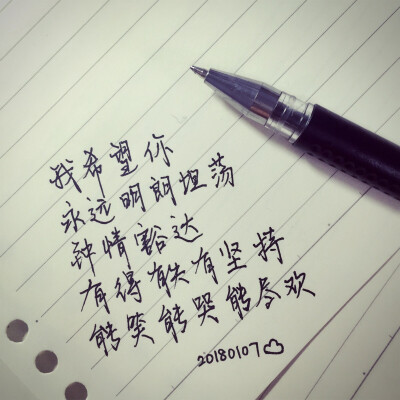 我希望你
永远明朗坦荡
钟情豁达
有得有失有坚持
能笑能哭能尽欢
20180107